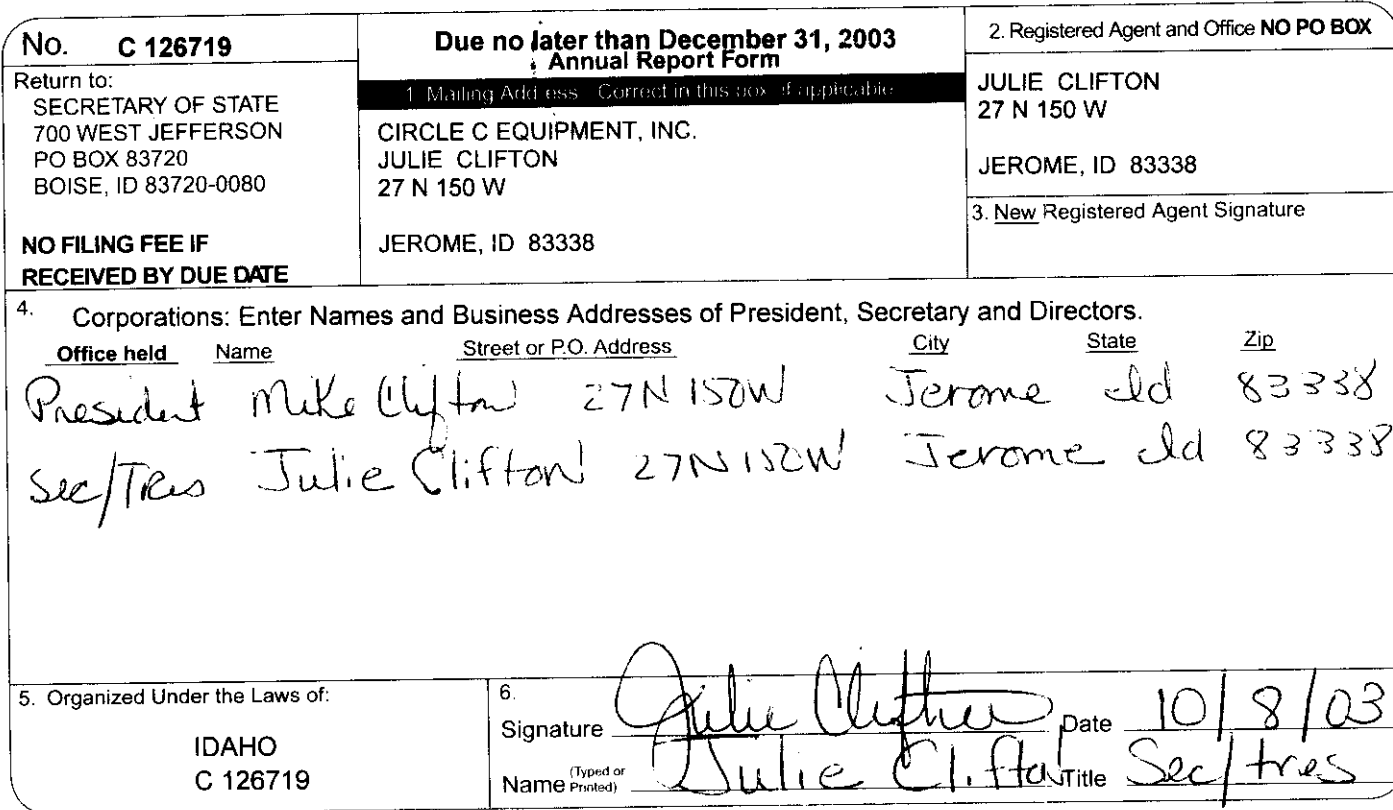 No. C 126719
Return to:
SECRETARY OF STATE
700 WEST JEFFERSON
PO BOX 83720
BOISE, ID 83720-0080
NO FILING FEE IF
RECEIVED BY DUE DATE
Due no later than December 31, 2003
Annual Report Form
1. Mailing Address Correct in this box if applicable
CIRCLE C EQUIPMENT, INC.
JULIE CLIFTON
27 N 150 W
JEROME, ID 83338
2. Registered Agent and Office NO PO BOX
JULIE CLIFTON
27 N 150 W
JEROME, ID 83338
3. New Registered Agent Signature
4. Corporations: Enter Names and Business Addresses of President, Secretary and Directors.
Office held Name Street or P.O. Address City State Zip
President Mike Clifton 27N 150W Jerome Id 83338
Sec/Tres Julie Clifton 27N 150W Jerome Id 83338
5. Organized Under the Laws of:
IDAHO
C 126719
6.
Signature Julie Clifton Date 10/8/03
Name (Typed or Printed) Julie Clifton Title Sec/tres